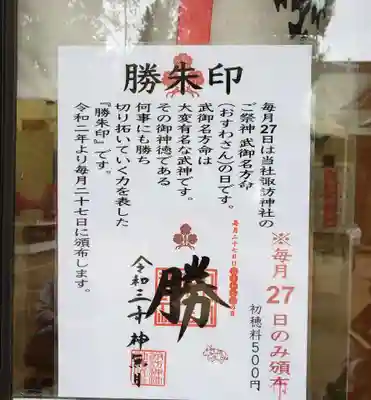 勝朱印
毎月27日は当社諏訪神社の
ご祭神 武御名方命
(おすわさん)の日です。
武御名方命は
大変有名な武神です。
その御神徳である
何事にも勝ち
切り拓いていく力を表した
『勝朱印』です。
令和二年より毎月二十七日に頒布します。
※毎月27日のみ頒布
初穂料500円
毎月二十七日
勝
令和三年神無月